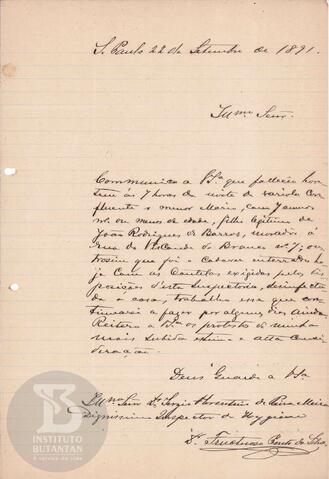 S. Paulo 22 de Setembro de 1891.
Illmo. Senr.
Communico a Va. que falleceu hon
tem as 7 horas da noite de variola con
fluente o menor Mario, com 7 annos
mais ou menos de idade, filho legitimo de
João Rodrigues de Barros, morador á
rua do Visconde do Rio Branco nº
trosim que foi o cadaver enterrado ho
je com as cautelas exigidas pelas dis
posições d'esta Inspectoria, desinfecta
da a casa, trabalho esse que con
tinuarei a fazer por alguns dias ainda.
Reitero a Va. os protestos de minha
mais subida estima e alta consi
deração.
Deus Guarde a Va.
Illmo. Senr. Dr. Sergio Florentino de Paiva Meira
Dignissimo Inspector de Hygiene
Dr. Fructuoso Pinto da Silva
INSTITUTO
BUTANTAN
A serviço da vida